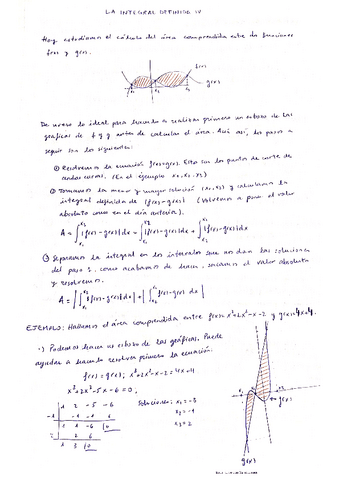 LA INTEGRAL DEFINIDA IV
Hoy estudiamos el cálculo del área comprendida entre dos funciones
f(x) y g(x).
f(x)
g(x)
De nuevo lo ideal para hacerlo es realizar primero un esbozo de las
gráficas de f y g antes de calcular el área. Aún así, los pasos a
seguir son los siguientes:
① Resolvemos la ecuación f(x)=g(x). Esto son los puntos de corte de
ambas curvas. (En el ejemplo x₁, x₂, x₃)
② Tomamos la menor y mayor solución (x₁, x₃) y calculamos la
integral definida de |f(x)-g(x)| (Volvemos a poner el valor
absoluto como en el día anterior).
A = ∫ |f(x)-g(x)| dx = ∫ |f(x)-g(x)| dx + ∫ |f(x)-g(x)| dx
③ Separamos la integral en los intervalos que nos dan las soluciones
del paso 1. Como acabamos de hacer, sacamos el valor absoluto
y resolvemos.
A = |∫ f(x)-g(x) dx| + |∫ f(x)-g(x) dx|
EJEMPLO: Hallamos el área comprendida entre f(x)= x³+2x²-x-2 y g(x)=4x+4.
·) Podemos hacer un esbozo de las gráficas. Puede
ayudar a hacerlo resolver primero la ecuación:
f(x) = g(x); x³+2x²-x-2 = 4x+4
x³+2x²-5x-6 = 0;
1 2 -5 -6
-1 -1 -1 6
1 1 -6 0
2 2 6
1 3 0
Soluciones: x₁ = -3
x₂ = -1
x₃ = 2
g(x)